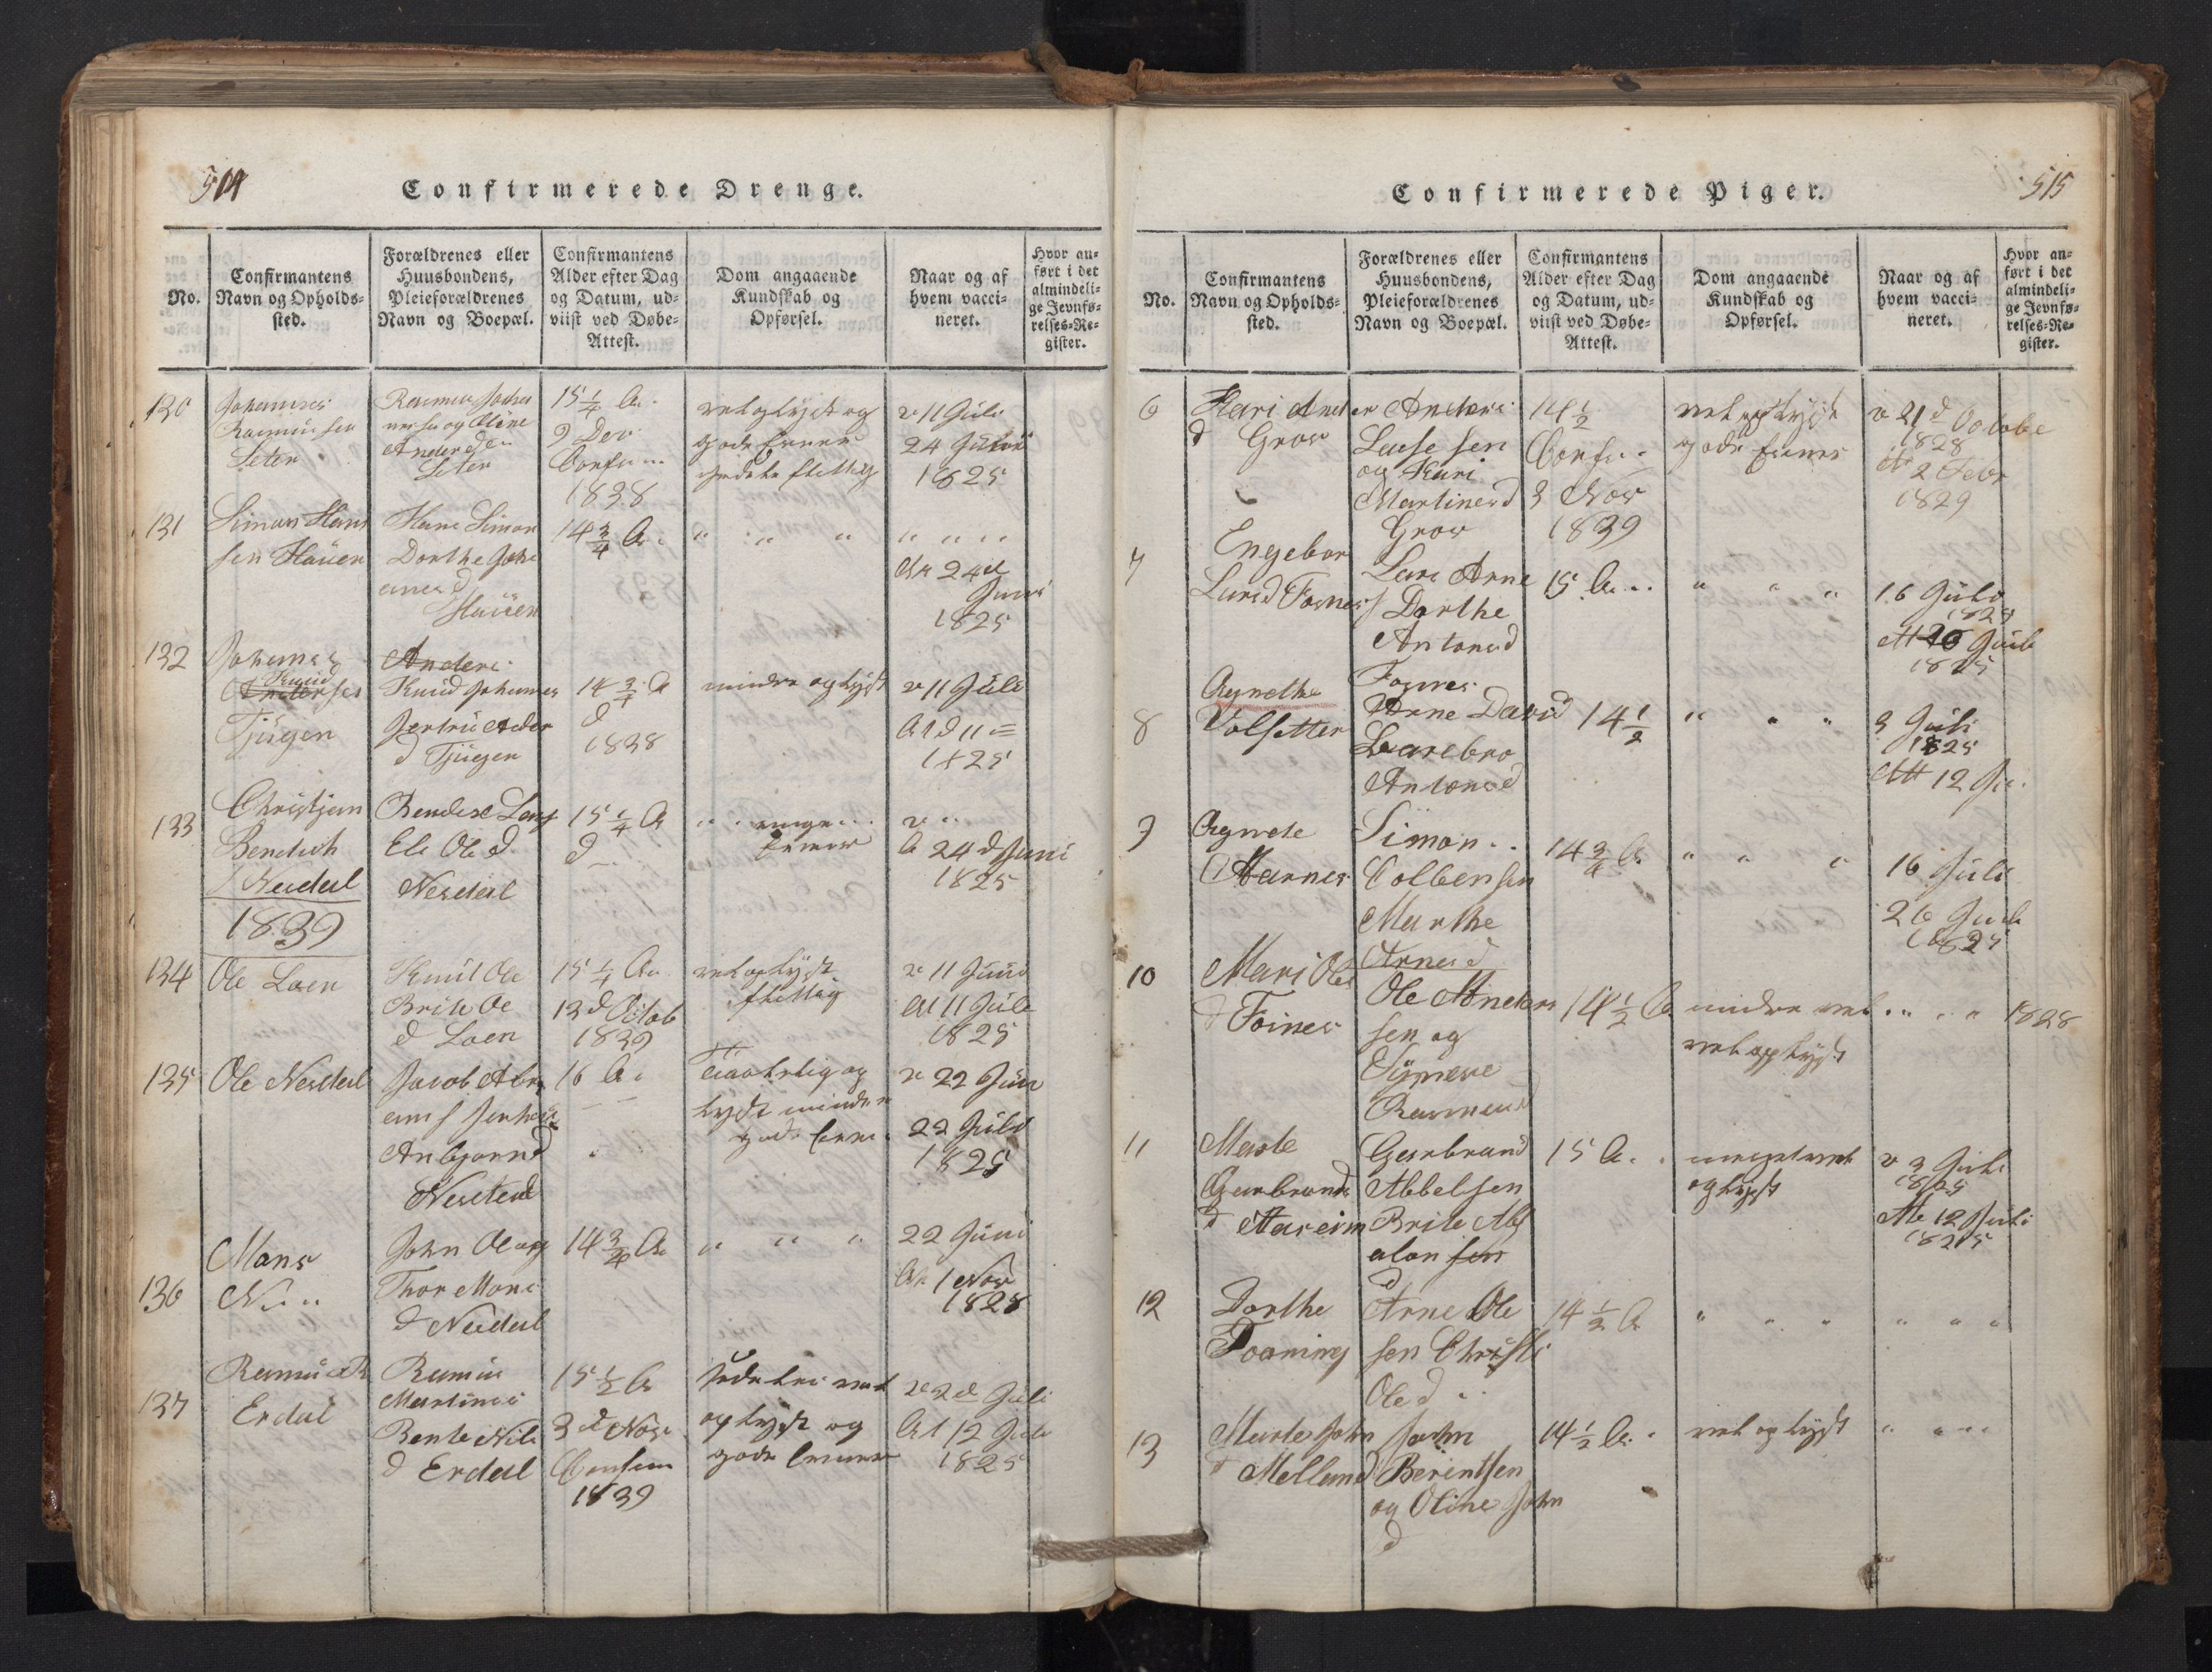 514
Confirmerede Drenge.
No.
Confirmantens
Navn og Opholds-
sted.
Forældrenes eller
Huusbondens,
Pleieforældrenes
Navn og Boepæl.
Confirmantens
Alder efter Dag
og Datum, ud-
viist ved Døbe-
Attest.
Dom angaaende
Kundskab og
Opførsel.
Naar og af
hvem vacci-
neret.
Hvor an-
ført i det
almindeli-
ge Jevnfø-
relses-Re-
gister.
130
Johannes
Rasmussen
Seter
Anders d
Seter
15 1/4 A.
1838
vel oplyst og
v 11 Juli
24
1825
131
Simon Hans
sen Hauen
Hans Simon
Dorthe Joha
anes d
Hauen
14 3/4 A.
" " "
" " " "
24
Juni
1825
132
Johannes
Knud
Anders sen
Tjugen
Anders
Knud Johannes
d Tjugen
14 3/4 A
d
1838
mindre oplyst
v 11 Juli
1825
133
Christian
Benedich
1839
Ole d
Nesdal
15 1/4 A
d
24 d Juni
1825
134
Ole Loen
Knut Ole
Brite Ole
d Loen
15 1/4 A.
13 d Octob
1839
vel oplyst
flittig
v 11 Juni
At 11 Juli
1825
135
Ole Nesdal
Jacob Abra
Anbjørn d
Nesdal
16 A.
v 22 Jun
22 Juli
1825
136
Mons
N " "
John Ole og
Thor Mons
d Nesdal
14 3/4 A.
" " "
22 Juni
1 Nov
1828
137
Rasmus R
Erdal
Rasmus
Martinus
Bente Nils
d Erdal
15 1/2 A
3 d Nov
1839
oplyst og
v 2 d Juli
At 12 Juli
1825
515
Confirmerede Piger.
No.
Confirmantens
Navn og Opholds-
sted.
Forældrenes eller
Huusbondens,
Pleieforældrenes
Navn og Boepæl.
Confirmantens
Alder efter Dag
og Datum, ud-
viist ved Døbe-
Attest.
Dom angaaende
Kundskab og
Opførsel.
Naar og af
hvem vacci-
neret.
Hvor an-
ført i det
almindeli-
ge Jevnfø-
relses-Re-
gister.
6
Kari Anders
d Grov
Anders
Lassesen
og Kari
Martines d
Grov
14 1/2
3 Nov
1839
vel oplyst
v 21 d Octobe
1828
At 2 Febr
1829
7
Engebor
Lars d Fosnes
Lars Arne
Dorthe
Antones d
Fosnes
15 A.
" " "
16 Juli
1825
At 26 Juli
1825
8
Agnethe
Volsetter
Arne David
Antones d
14 1/2
" " "
3 Juli
1825
Att 12 Ju
9
Agnete
Aarnes
Simon
Colbensen
Marthe
Arnes d
14 3/4 A
" " "
16 Juli
26 Juli
1825
10
Mari Ols
d Foines
Ole Anders
sen og
Synneve
Rasmus d
14 1/2 A
mindre vel
vel oplyst
" " " "
1828
11
Marte
Garbrands
d Aareim
Garbrand
Abbelsen
Brite Abs
alon sen
d
15 A.
meget vel
oplyst
v 3 Juli
1825
At 12 Juli
1825
12
Dorthe
Toaning
Arne Ole
sen Christi
Ole d
14 1/2 A
" " "
" " "
13
Marte John
d Melland
John
Berentsen
og Oline John
d
14 1/2 A.
vel oplyst
" " " "